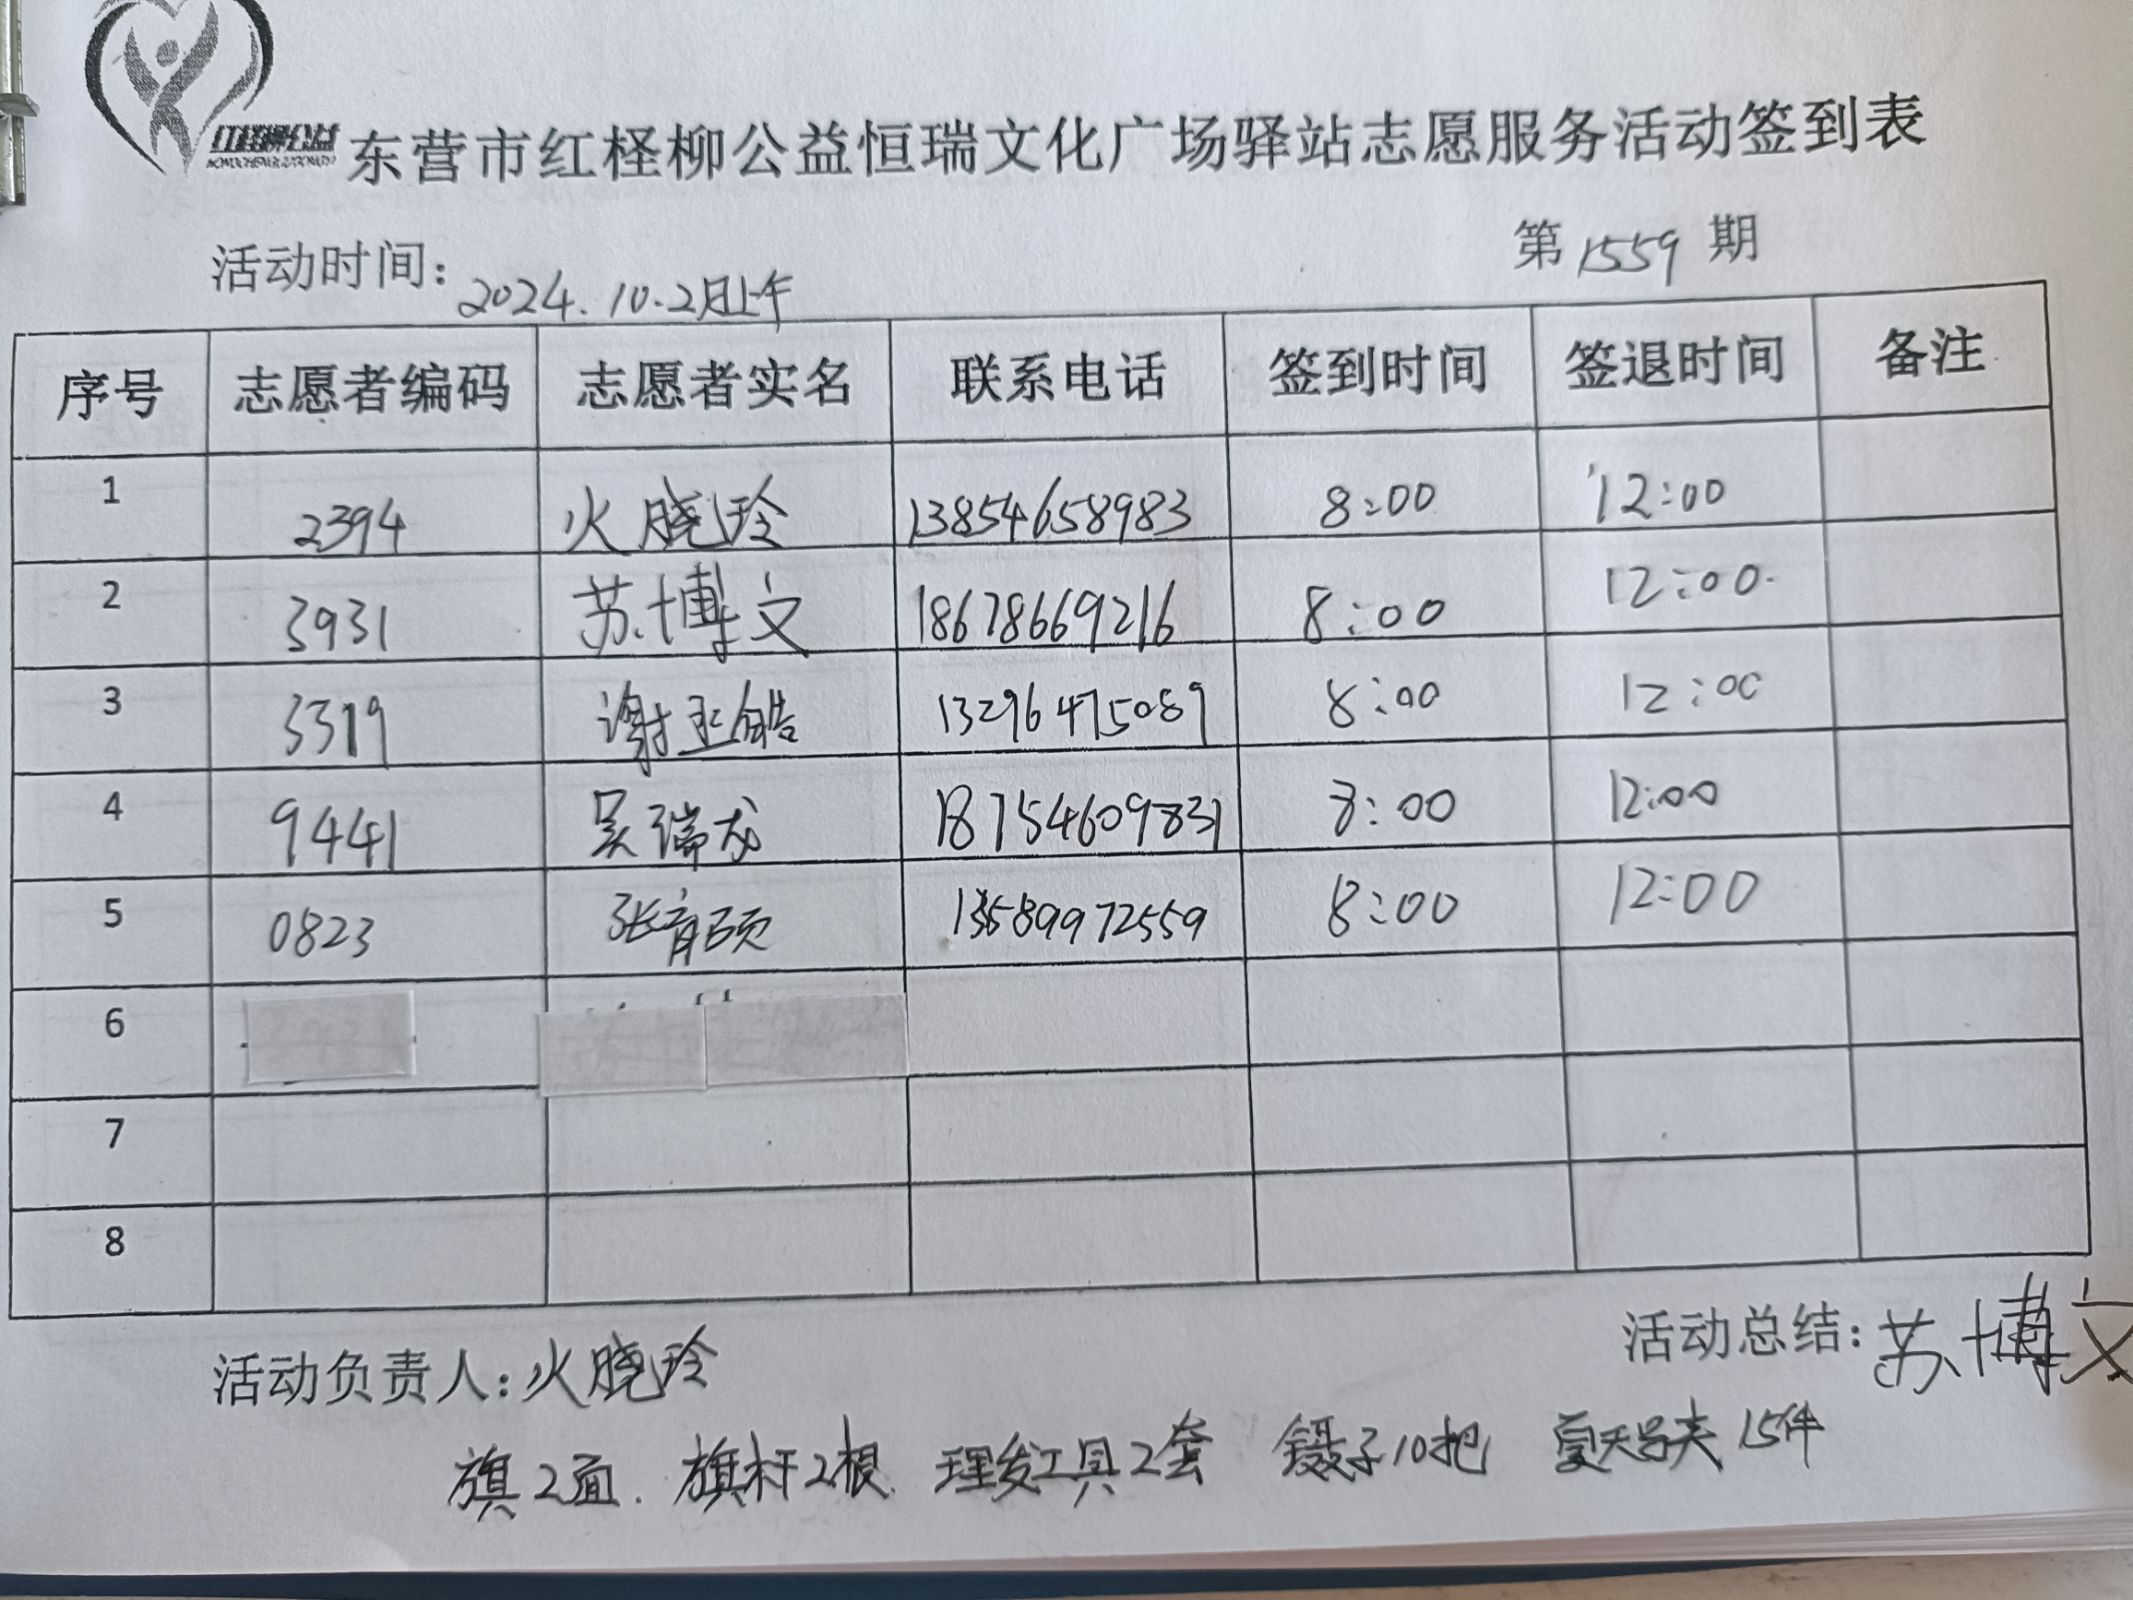 红柽柳公益
东营市红柽柳公益恒瑞文化广场驿站志愿服务活动签到表
活动时间: 2024.10.2日上午 第1559期
序号 志愿者编码 志愿者实名 联系电话 签到时间 签退时间 备注
1 2394 火晓玲 13854658983 8:00 12:00
2 3931 苏博文 18678669216 8:00 12:00
3 3319 谢正皓 13296475089 8:00 12:00
4 9441 吴瑞龙 18754609831 8:00 12:00
5 0823 张育硕 13589972559 8:00 12:00
6
7
8
活动负责人: 火晓玲 活动总结: 苏博文
旗2面. 旗杆2根. 理发工具2套 镊子10把 夏天马夹15件